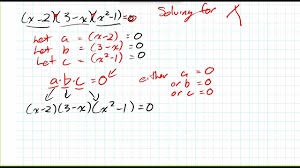 (x-2)(3-x)(x²-1)=0
Solving for X
Let a = (x-2) = 0
Let b = (3-x) = 0
Let c = (x²-1) = 0
a·b·c = 0
either a = 0
or b = 0
or c = 0
(x-2)(3-x)(x²-1) = 0